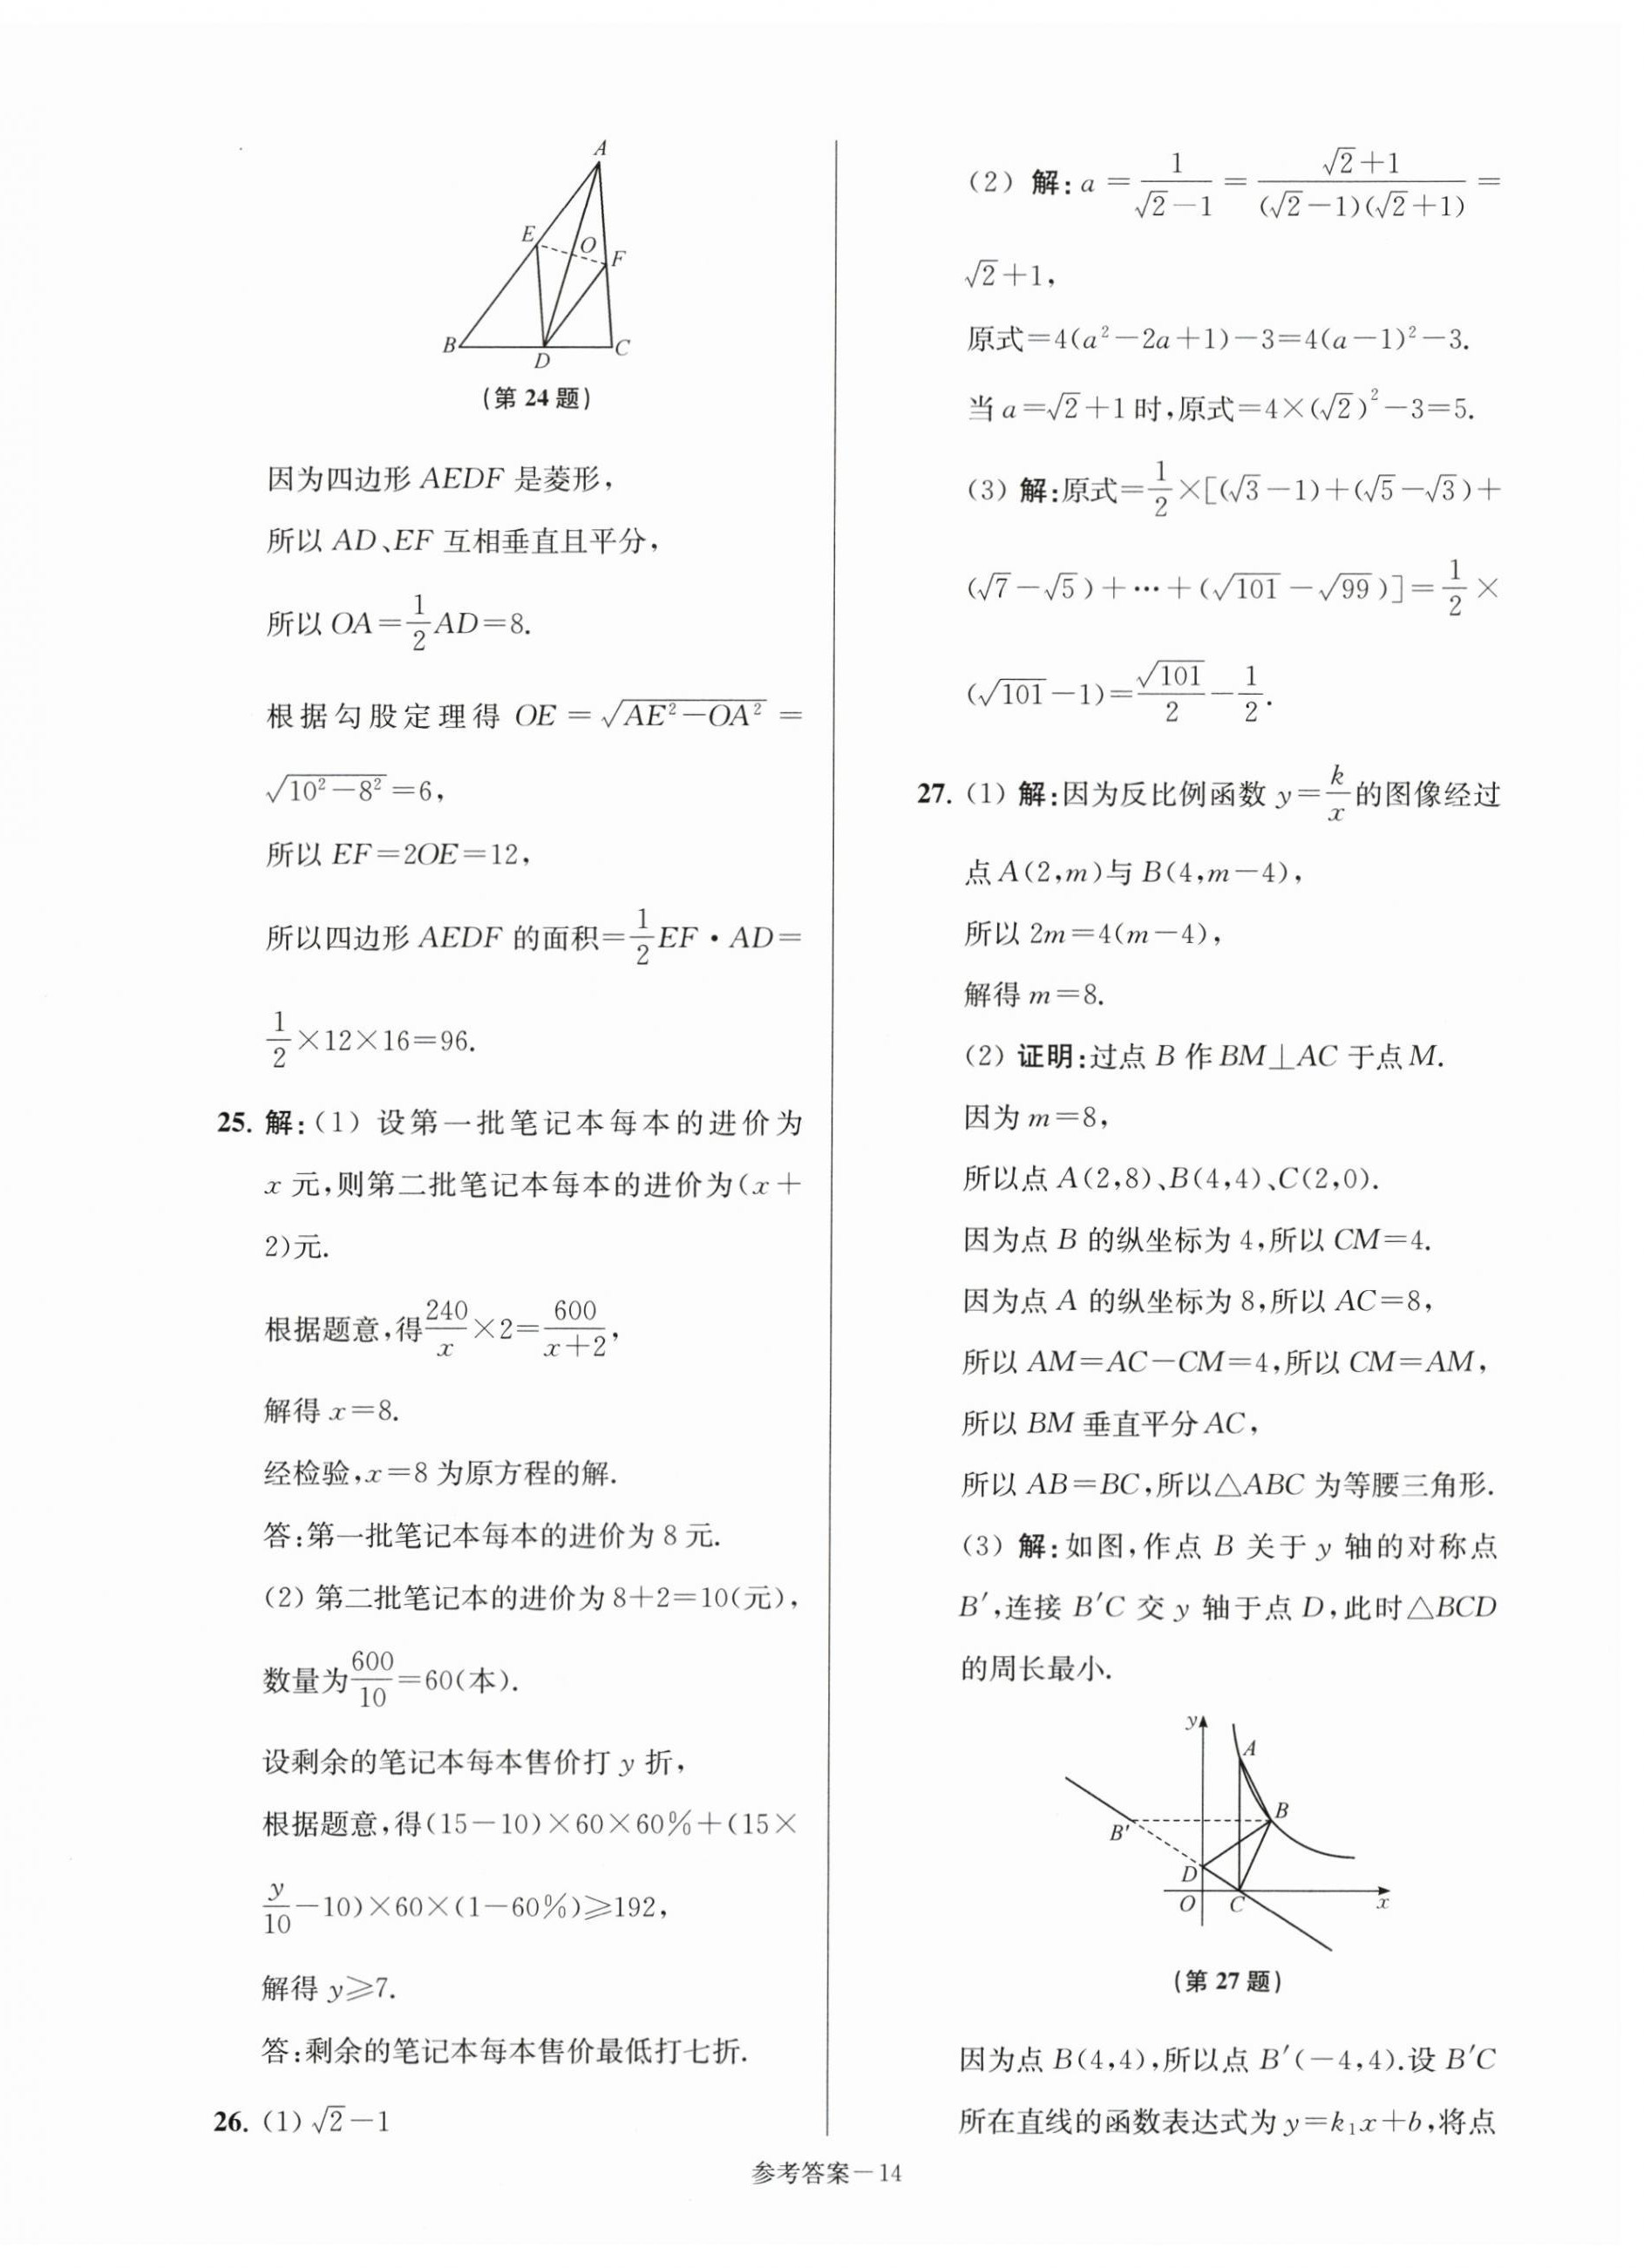 A
E
O
F
B
D
C
(第 24 题)
因为四边形 AEDF 是菱形，
所以 AD、EF 互相垂直且平分，
所以 OA=\frac{1}{2}AD=8.
根据勾股定理得 OE=\sqrt{AE²-OA²}=
\sqrt{10²-8²}=6，
所以 EF=2OE=12，
所以四边形 AEDF 的面积=\frac{1}{2}EF·AD=
\frac{1}{2}×12×16=96.
25. 解:(1) 设第一批笔记本每本的进价为
x 元,则第二批笔记本每本的进价为(x+
2)元.
根据题意,得\frac{240}{x}×2=\frac{600}{x+2}，
解得 x=8.
经检验,x=8 为原方程的解.
答:第一批笔记本每本的进价为 8 元.
(2) 第二批笔记本的进价为 8+2=10(元)，
数量为\frac{600}{10}=60(本).
设剩余的笔记本每本售价打 y 折，
根据题意,得(15-10)×60×60%+(15×
\frac{y}{10}-10)×60×(1-60%)≥192，
解得 y≥7.
答:剩余的笔记本每本售价最低打七折.
26. (1) √2-1
(2) 解:a=\frac{1}{√2-1}=\frac{√2+1}{(√2-1)(√2+1)}=
√2+1，
原式=4(a²-2a+1)-3=4(a-1)²-3.
当 a=√2+1 时,原式=4×(√2)²-3=5.
(3) 解:原式=\frac{1}{2}×[(√3-1)+(√5-√3)+
(√7-√5)+…+(√101-√99)]=\frac{1}{2}×
(√101-1)=\frac{√101}{2}-\frac{1}{2}.
27. (1) 解:因为反比例函数 y=\frac{k}{x}的图像经过
点 A(2,m)与 B(4,m-4)，
所以 2m=4(m-4)，
解得 m=8.
(2) 证明:过点 B 作 BM⊥AC 于点 M.
因为 m=8，
所以点 A(2,8)、B(4,4)、C(2,0).
因为点 B 的纵坐标为 4,所以 CM=4.
因为点 A 的纵坐标为 8,所以 AC=8，
所以 AM=AC-CM=4,所以 CM=AM，
所以 BM 垂直平分 AC，
所以 AB=BC,所以△ABC 为等腰三角形.
(3) 解:如图,作点 B 关于 y 轴的对称点
B′,连接 B′C 交 y 轴于点 D,此时△BCD
的周长最小.
y
A
B
B′
D
O
C
x
(第 27 题)
因为点 B(4,4),所以点 B′(-4,4).设 B′C
所在直线的函数表达式为 y=k₁x+b,将点
参考答案-14